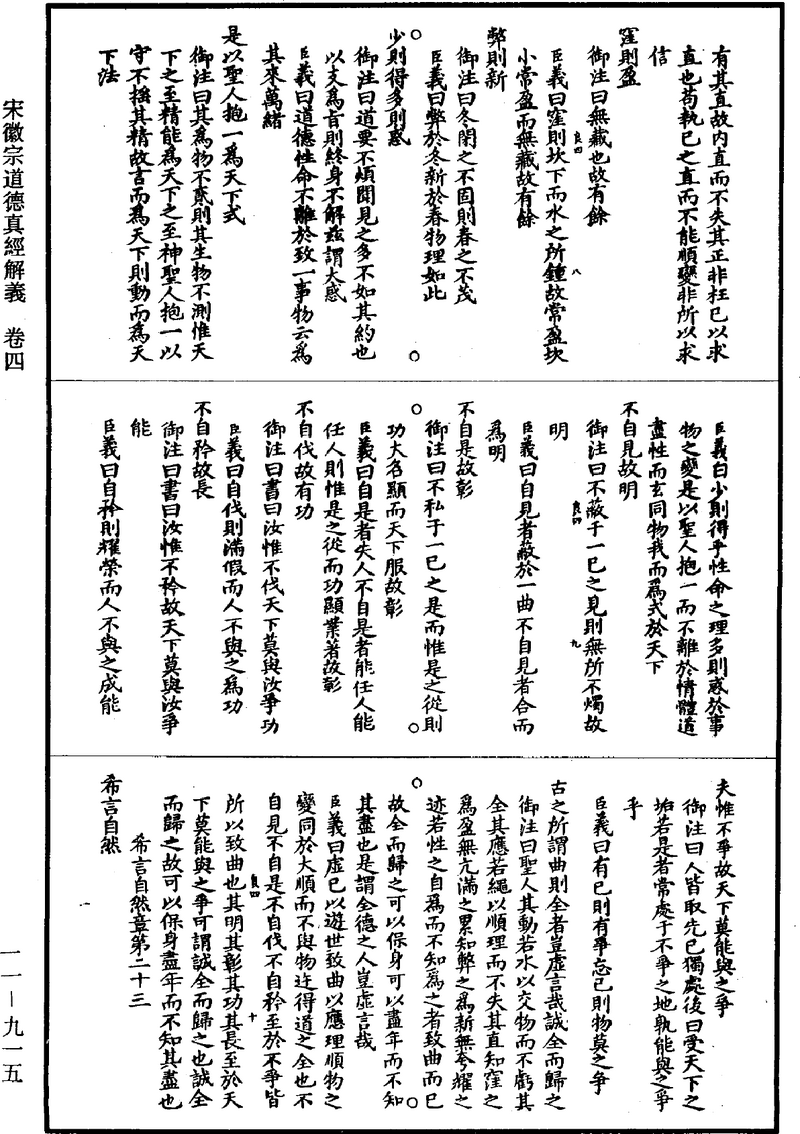 宋徽宗道德真經解義 卷四
一一—九一五
有其直故内直而不失其正非枉己以求
直也苟執己之直而不能順變非所以求
信
窪則盈
御注曰無藏也故有餘
良四 八
臣義曰窪則坎下而水之所鍾故常盈坎
小常盈而無藏故有餘
弊則新
御注曰冬閉之不固則春之不茂
臣義曰弊於冬新於春物理如此
少則得多則惑
御注曰道要不煩聞見之多不如其約也
以支為旨則終身不解兹謂大惑
臣義曰道德性命不離於致一事物云為
其來萬緒
是以聖人抱一為天下式
御注曰其為物不貳則其生物不測惟天
下之至精能為天下之至神聖人抱一以
守不摇其精故言而為天下則動而為天
下法
臣義曰少則得乎性命之理多則惑於事
物之變是以聖人抱一而不離於情體道
盡性而玄同物我而為式於天下
不自見故明
御注曰不蔽于一己之見則無所不燭故
良四 九
明
臣義曰自見者蔽於一曲不自見者合而
為明
不自是故彰
御注曰不私于一己之是而惟是之從則
功大名顯而天下服故彰
臣義曰自是者失人不自是者能任人能
任人則惟是之從而功顯業著故彰
不自伐故有功
御注曰書曰汝惟不伐天下莫與汝爭功
臣義曰自伐則滿假而人不與之為功
不自矜故長
御注曰書曰汝惟不矜故天下莫與汝爭
能
臣義曰自矜則耀榮而人不與之成能
夫惟不爭故天下莫能與之爭
御注曰人皆取先己獨處後曰受天下之
垢若是者常處于不爭之地孰能與之爭
乎
臣義曰有己則有爭忘己則物莫之爭
古之所謂曲則全者豈虚言哉誠全而歸之
御注曰聖人其動若水以交物而不虧其
全其應若繩以順理而不失其直知窪之
為盈無亢滿之累知弊之為新無夸耀之
迹若性之自為而不知為之者致曲而已
故全而歸之可以保身可以盡年而不知
其盡也是謂全德之人豈虚言哉
臣義曰虚己以遊世致曲以應理順物之
變同於大順而不與物迕得道之全也不
自見不自是不自伐不自矜至於不爭皆
良四 十
所以致曲也其明其彰其功其長至於天
下莫能與之爭可謂誠全而歸之也誠全
而歸之故可以保身盡年而不知其盡也
希言自然章第二十三
希言自然